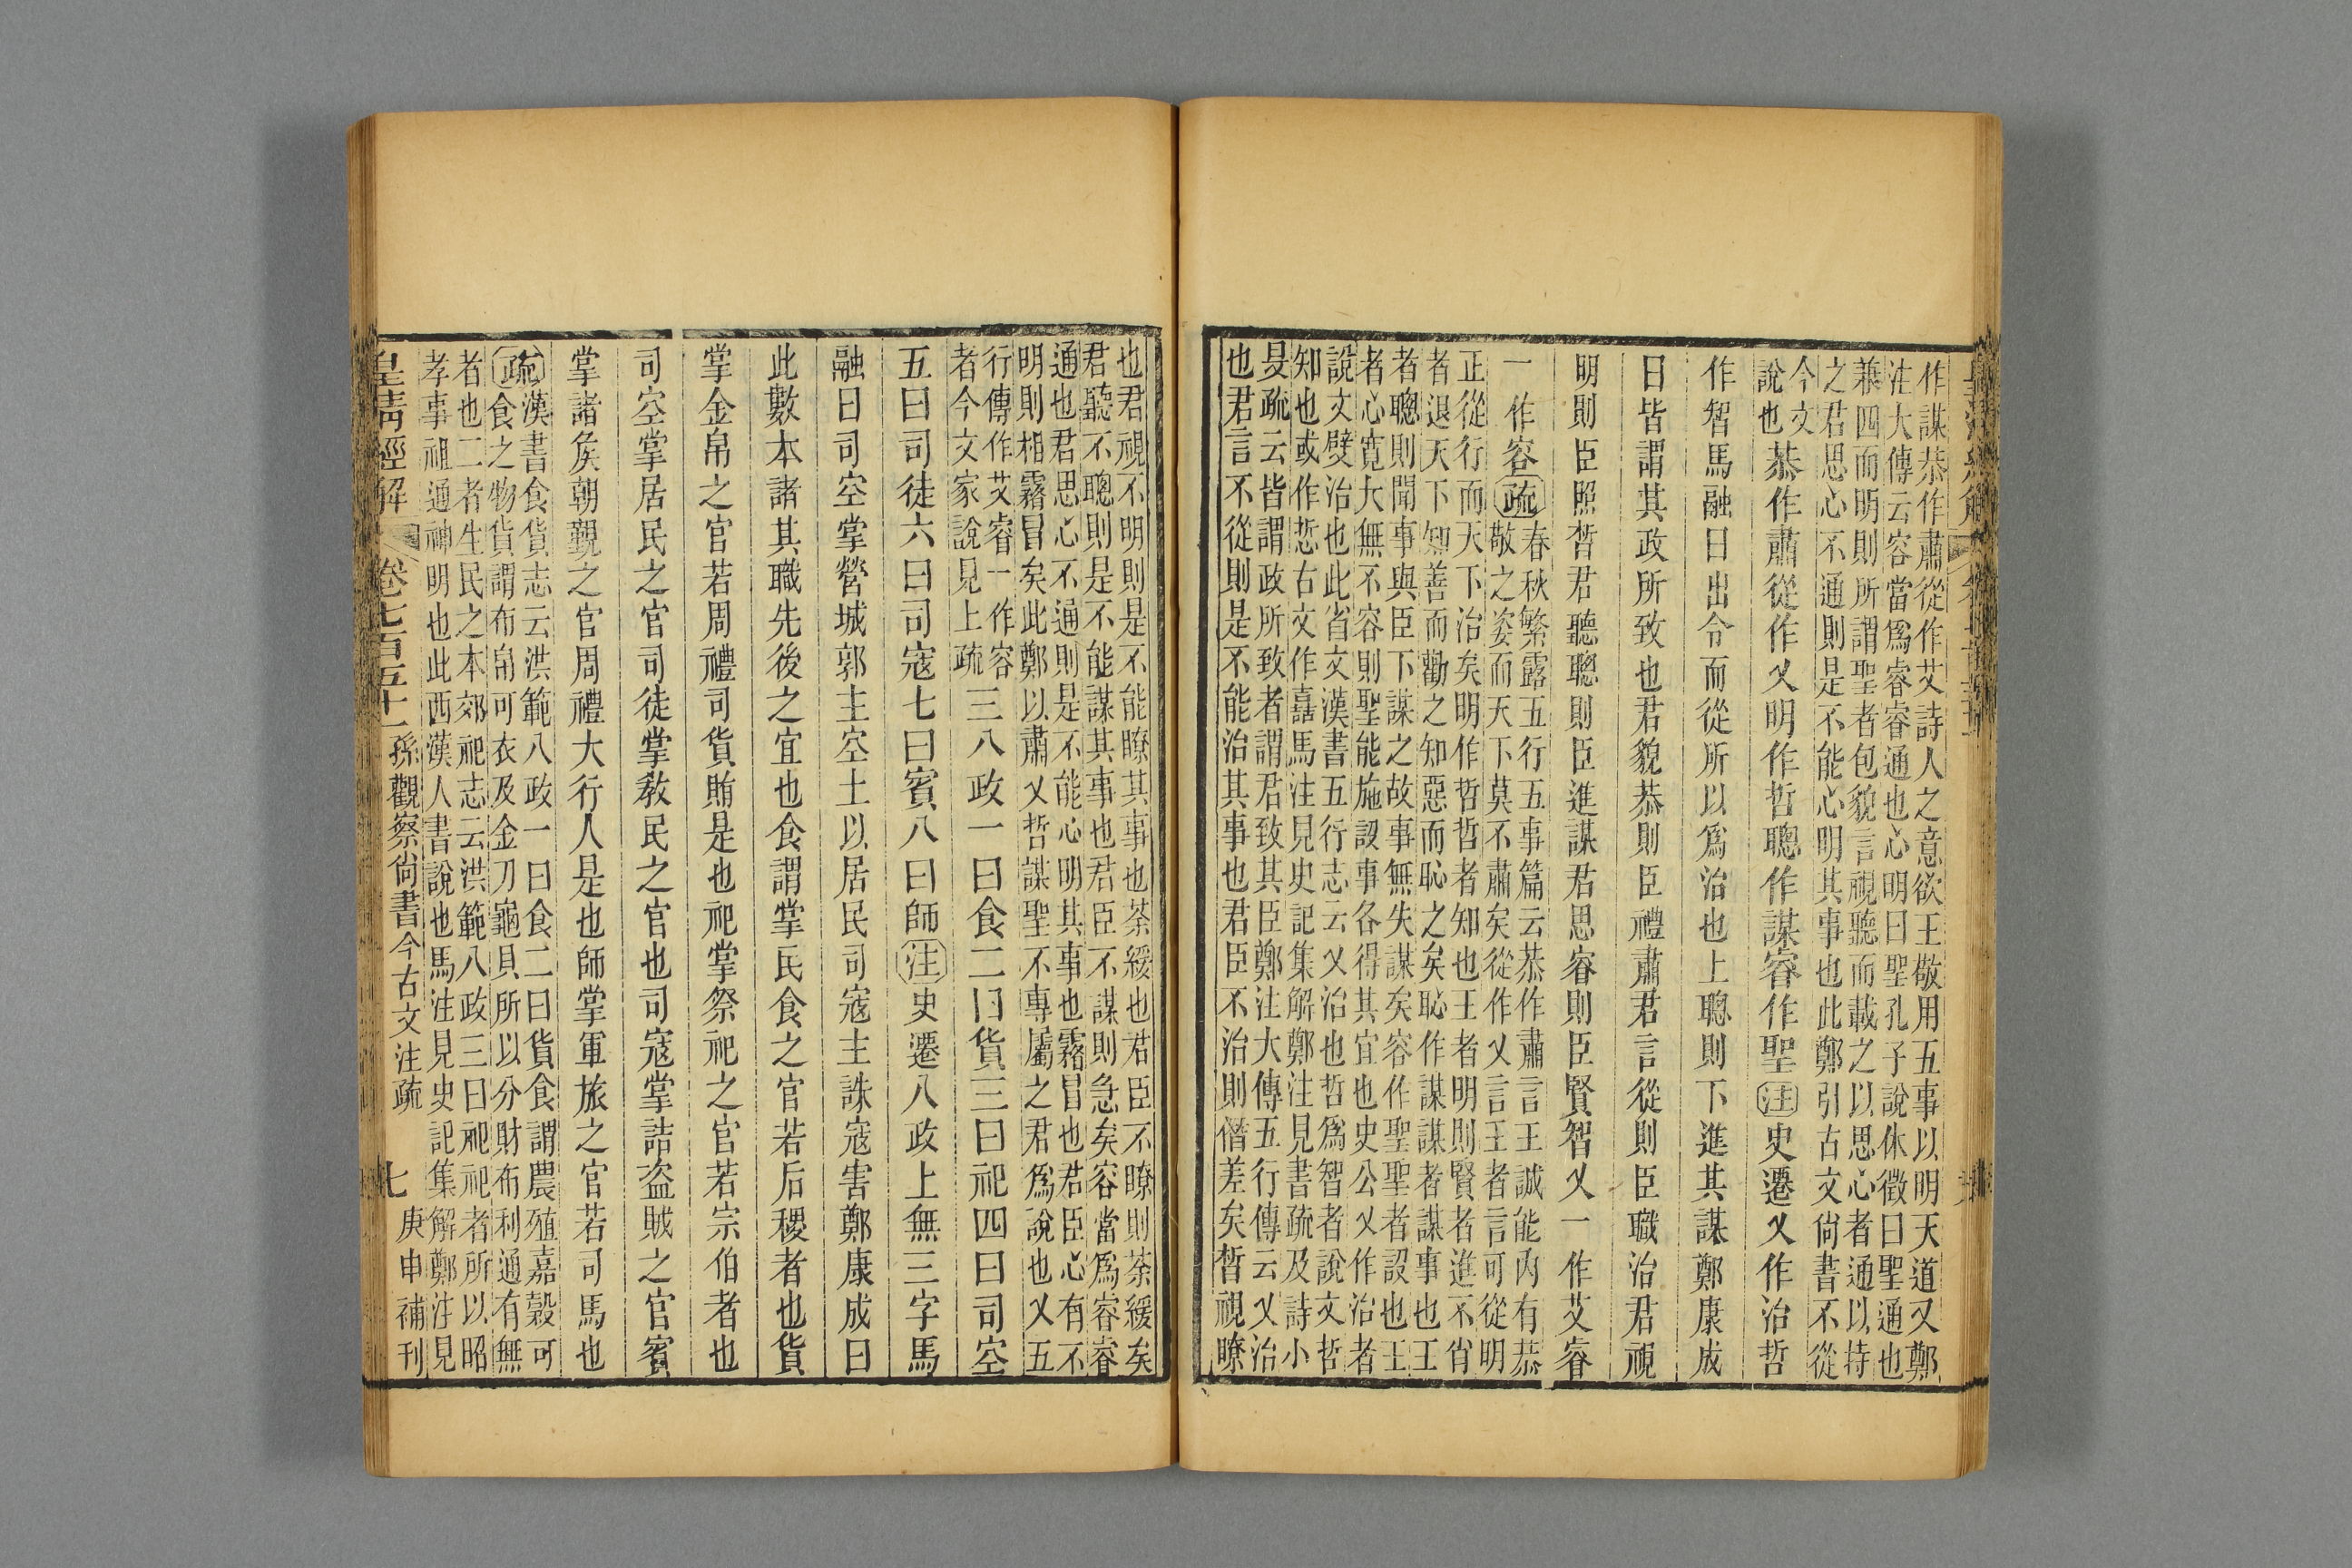 作謀恭作肅從作艾詩人之意欲王敬用五事以明天道又鄭
注大傳云容當爲睿睿通也心明曰聖孔子說休徵曰聖通也
兼四而明則所謂聖者包貌言視聽而載之以思心者通以持
之君思心不通則是不能心明其事也此鄭引古文尙書不從
今文
說也
恭作肅從作乂明作哲聰作謀睿作聖注史遷乂作治哲
作智馬融曰出令而從所以爲治也上聰則下進其謀鄭康成
曰皆謂其政所致也君貌恭則臣禮肅君言從則臣職治君視
明則臣照晢君聽聰則臣進謀君思睿則臣賢智乂一作艾睿
一作容疏
春秋繁露五行五事篇云恭作肅言王誠能內有恭
敬之姿而天下莫不肅矣從作乂言王者言可從明
正從行而天下治矣明作哲哲者知也王者明則賢者進不肖
者退天下知善而勸之知惡而恥之矣恥作謀謀者謀事也王
者聰則聞事與臣下謀之故事無失謀矣容作聖聖者設也王
者心寬大無不容則聖能施設事各得其宜也史公乂作治者
說文嬖治也此省文漢書五行志云乂治也哲爲智者說文哲
知也或作悊古文作嚞馬注見史記集解鄭注見書疏及詩小
旻疏云皆謂政所致者謂君致其臣鄭注大傳五行傳云乂治
也君言不從則是不能治其事也君臣不治則僭差矣晢視瞭
也君視不明則是不能瞭其事也荼緩也君臣不瞭則荼緩矣
君聽不聰則是不能謀其事也君臣不謀則急矣容當爲容睿
通也君思心不通則是不能心明其事也霿冒也君臣心有不
明則相霿冒矣此鄭以肅乂哲謀聖不專屬之君爲說也乂五
行傳作艾睿一作容
者今文家說見上疏
三八政一曰食二曰貨三曰祀四曰司空
五曰司徒六曰司寇七曰賓八曰師注史遷八政上無三字馬
融曰司空掌營城郭主空土以居民司寇主誅寇害鄭康成曰
此數本諸其職先後之宜也食謂掌民食之官若后稷者也貨
掌金帛之官若周禮司貨賄是也祀掌祭祀之官若宗伯者也
司空掌居民之官司徒掌敎民之官也司寇掌詰盜賊之官賓
掌諸矦朝覲之官周禮大行人是也師掌軍旅之官若司馬也
疏
漢書食貨志云洪範八政一曰食二曰貨食謂農殖嘉穀可
食之物貨謂布帛可衣及金刀龜貝所以分財布利通有無
者也二者生民之本郊祀志云洪範八政三曰祀祀者所以昭
孝事祖通神明也此西漢人書說也馬注見史記集解鄭注見
皇淸經解 卷七百五十一 孫觀察尙書今古文注疏 七 庚申補刊